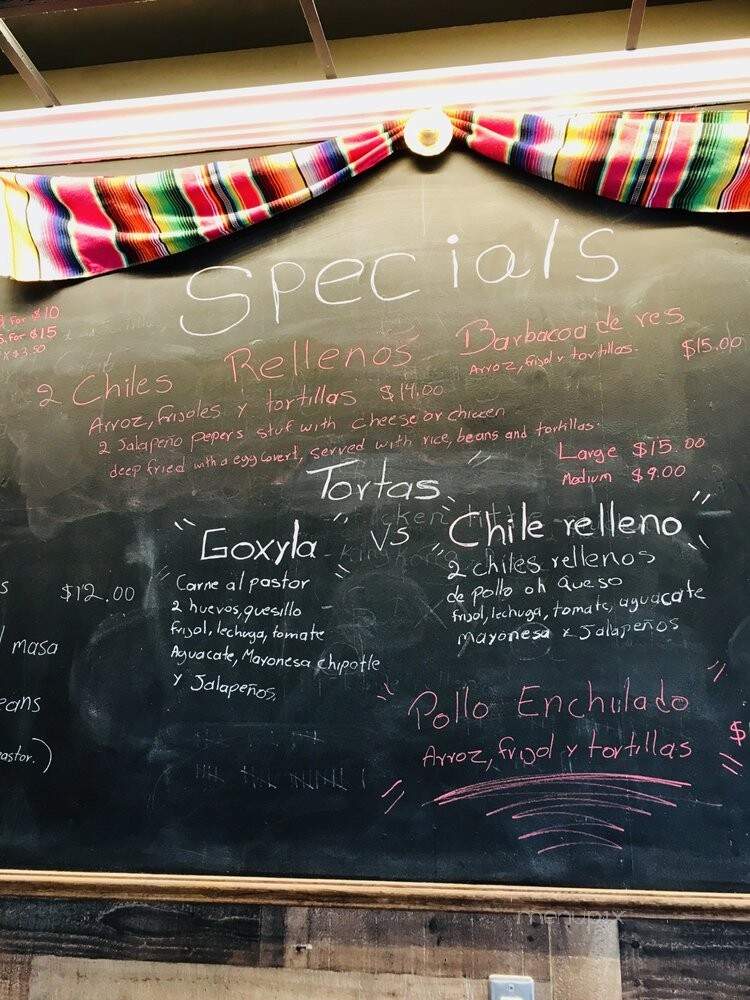 Specials
3 for $10
5 for $15
x $3.50
2 Chiles Rellenos
Arroz, frijoles y tortillas $14.00
2 Jalapeño pepers stuf with cheese or chicken
deep fried with a egg covert, served with rice, beans and tortillas.
Barbacoa de res
Arroz, frijol y tortillas. $15.00
Large $15.00
Medium $9.00
Tortas
"Goxyla"
Carne al pastor
2 huevos, quesillo
frijol, lechuga, tomate
Aguacate, Mayonesa chipotle
y Jalapeños.
VS
"Chile relleno"
2 chiles rellenos
de pollo oh queso
frijol, lechuga, tomate, aguacate
mayonesa x Jalapeños
s $12.00
masa
eans
astor.)
"Pollo Enchulado"
Arroz, frijol y tortillas
$
menupix